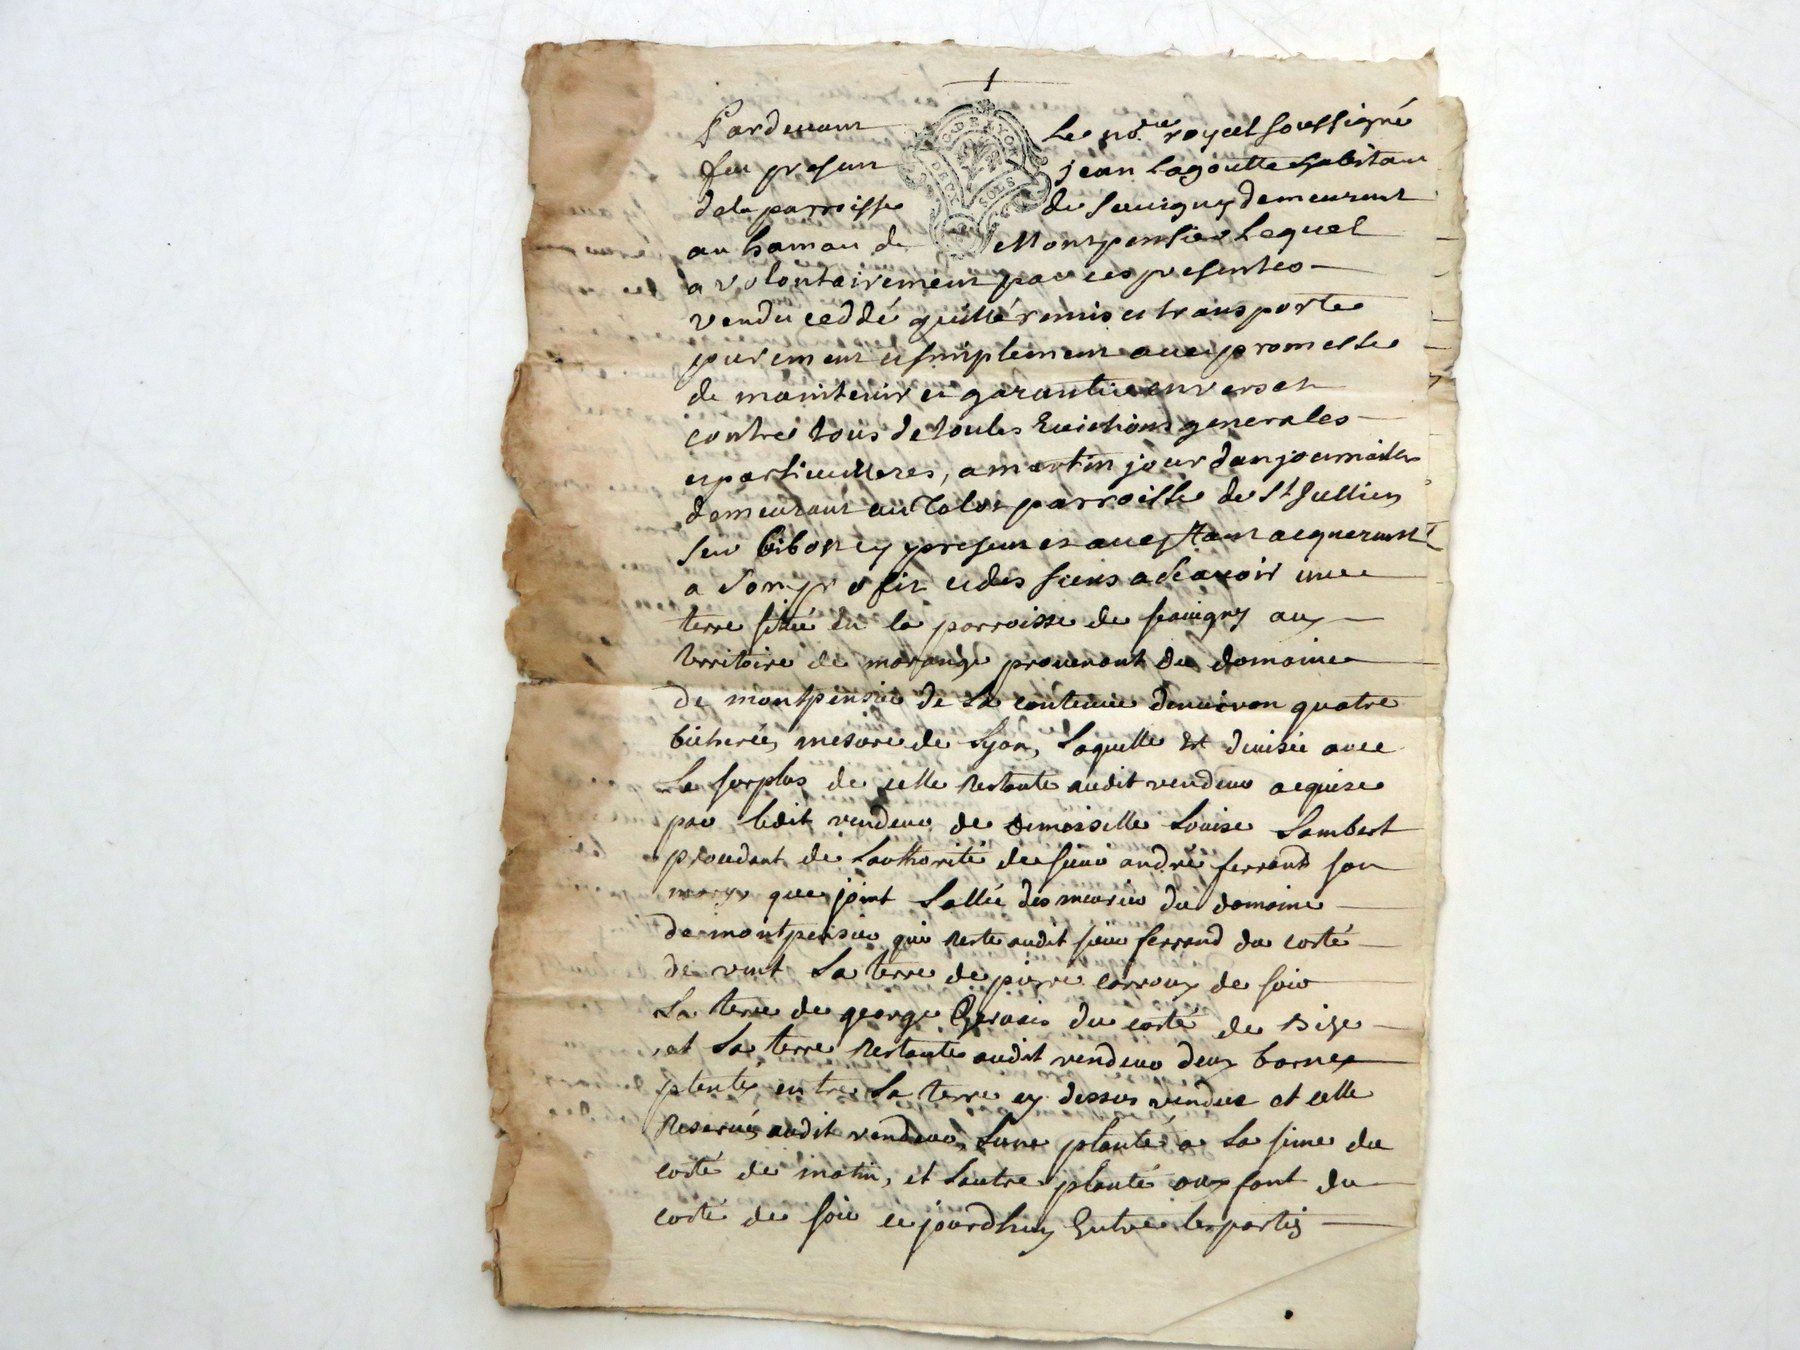 Pardevant Le no.re royal soussigné
fut present jean Lagoutte habitant
de la parroisse de Savigny demeurant
au hameau de Montpensier Lequel
a volontairement par ces presentes
vendu ceddé quitté remis et transporte
purement et simplement avec promesse
de maintenir et garantir envers et
contre tous de toutes Evictions generales
et particulieres, a martin jourdan journailier
demeurant au parroisse de St Jullien
sur Bibost cy present et acceptant acquerant
a son profit et des siens a scavoir une
terre situé en la parroisse de savigny aux
territoire de morange provenant du domaine
de montpensier de La contenue denviron quatre
bicherés, mesure de Lyon, Laquelle est divisée avec
Le surplus de celle Restante audit vendeur acquise
par ledit vendeur de demoiselle Louise Lambert
procedant de Lauthorité de sieur andré ferrand son
mary, que joint Lallée des meurier du domaine
de montpensier qui Reste audit sieur ferrand du costé
de vent La terre de pierre carroux de soir
La terre de george Gervais du costé de Bize
et La terre Restante audit vendeur deux bornes
plantés entre La terre cy dessus vendue et celle
Reservés audit vendeur, Lune planté a La sime du
costé de matin, et Lautre planté aux font du
costé de soir cejourdhuy Entre les partis